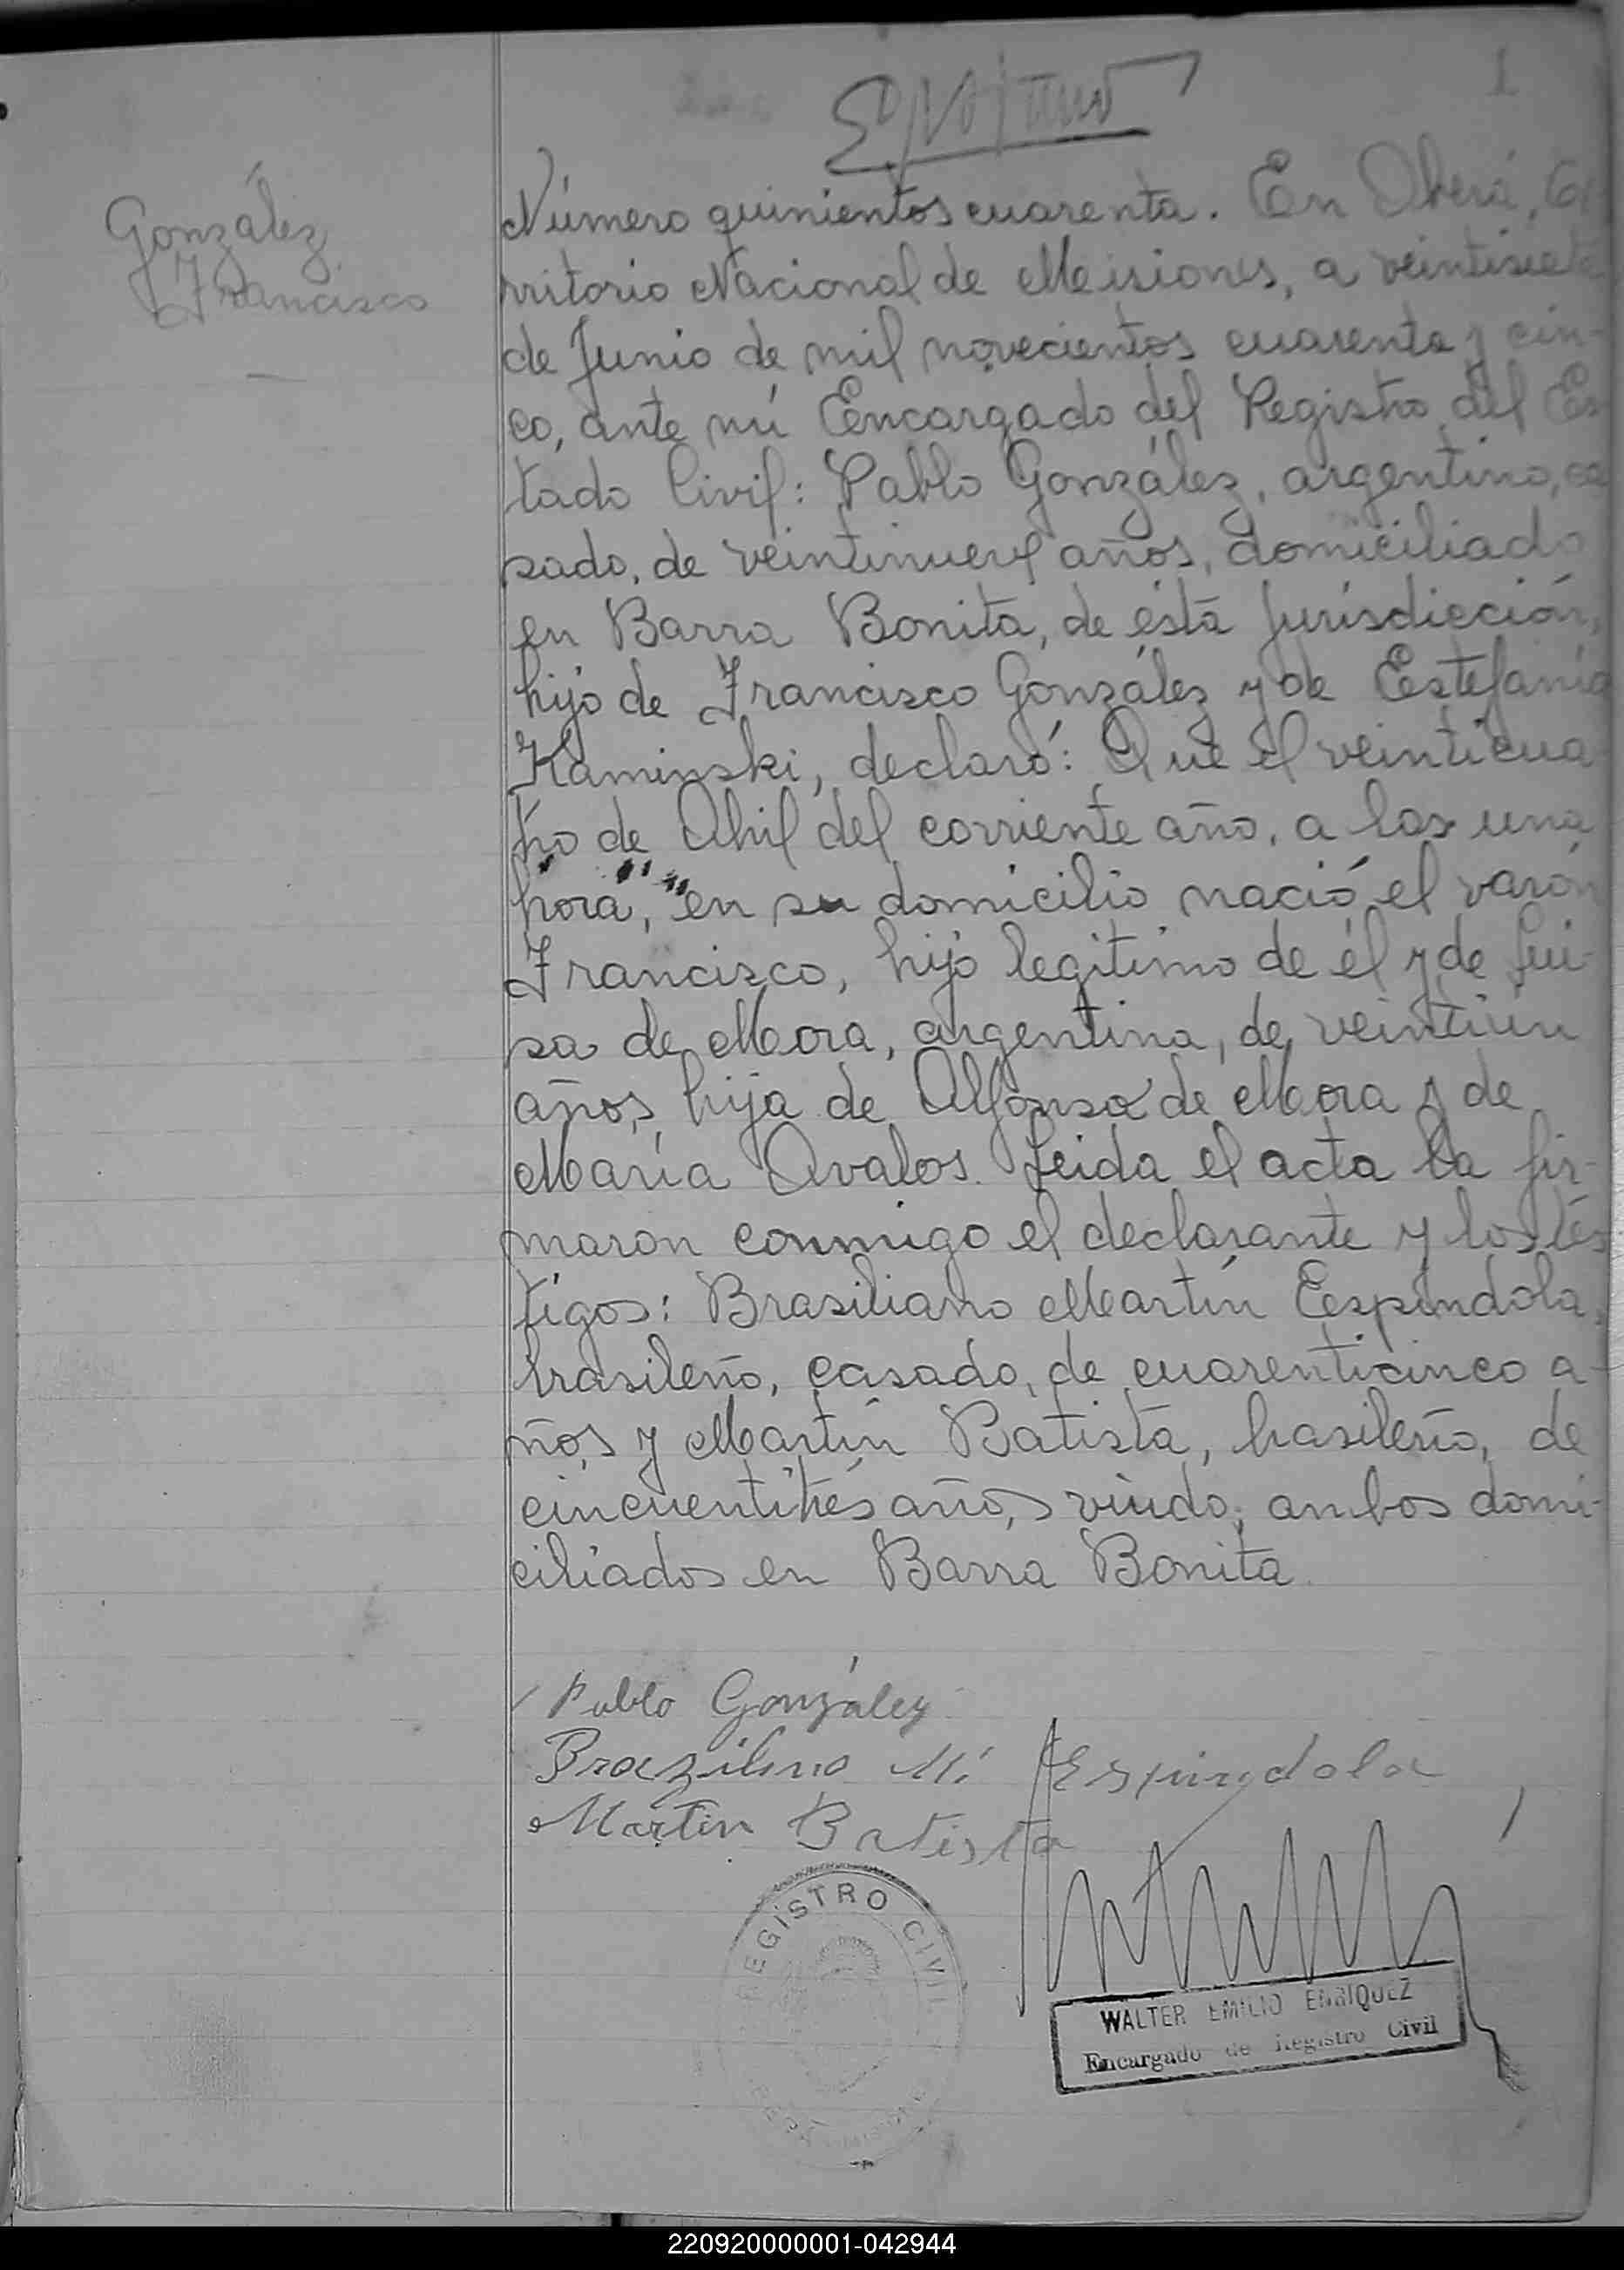 1
González
Francisco
Número quinientos cuarenta. En Oberá, Te
rritorio Nacional de Misiones, a veintisiete
de Junio de mil novecientos cuarenta y cin-
co, ante mí Encargado del Registro del Es
tado Civil: Pablo González, argentino, ca
sado, de veintinueve años, domiciliado
en Barra Bonita, de ésta jurisdicción,
hijo de Francisco González y de Estefanía
Kaminski, declaró: Que el veinticua
tro de Abril del corriente año, a las una
hora, en su domicilio nació el varón
Francisco, hijo legítimo de él y de Lui-
sa de Mora, argentina, de veintiún
años, hija de Alfonso de Mora y de
María Avalos. Leida el acta la fir-
maron conmigo el declarante y los tes
tigos: Brasiliano Martín Espíndola,
brasileño, casado, de cuarenticinco a-
ños y Martín Batista, brasileño, de
cincuentitrés años, viudo; ambos domi-
ciliados en Barra Bonita.
Pablo González
Brazilino M. Espindola
Martin Batista
REGISTRO CIVIL
WALTER EMILIO ENRIQUEZ
Encargado de Registro Civil
220920000001-042944